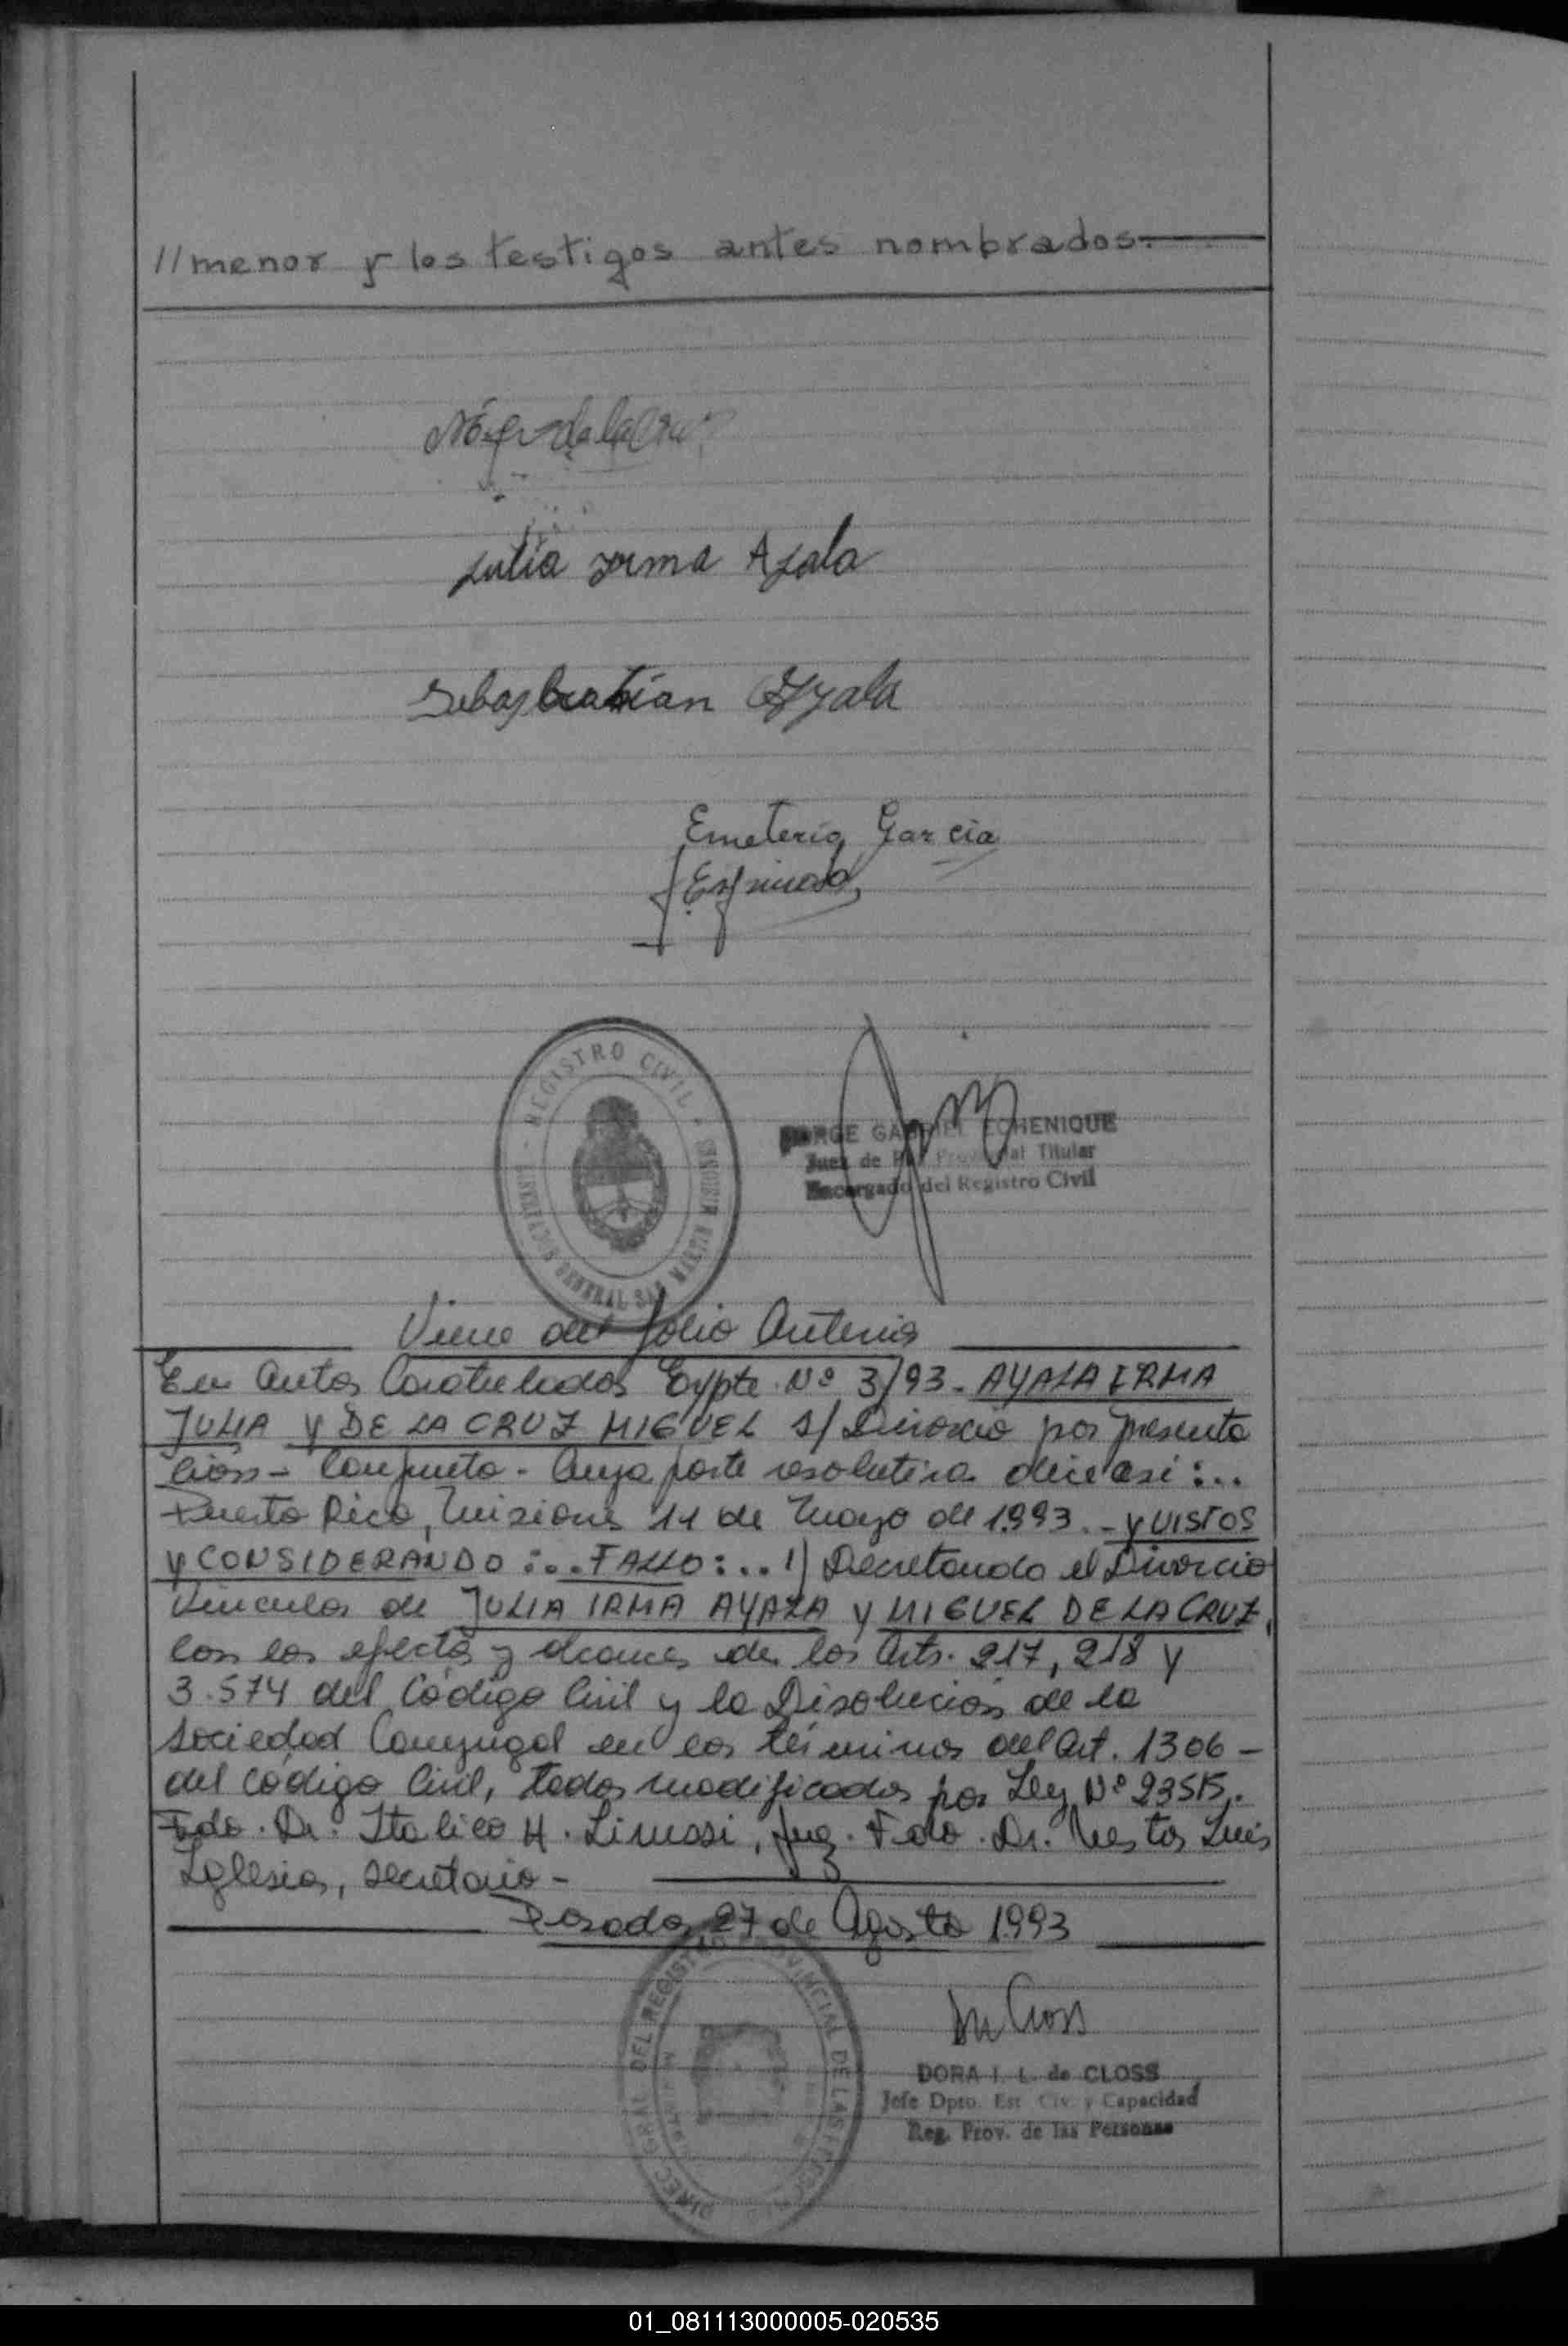 //menor y los testigos antes nombrados.
de la Cruz
Julia Irma Ayala
Ayala
Emeterio Garcia
Espinosa
- REGISTRO CIVIL -
GENERAL SAN MARTIN MISIONES
JORGE GABRIEL ECHENIQUE
Juez de Paz Provincial Titular
Encargado del Registro Civil
Viene del folio Anterior
En Autos Caratulados Expte. Nº 3/93. AYALA IRMA
JULIA Y DE LA CRUZ MIGUEL s/ Divorcio por Presenta
ción - Conjunta - Cuya parte resolutiva dice así:..
Puerto Rico, Misiones 11 de Mayo de 1993. - Y VISTOS
Y CONSIDERANDO:.. FALLO:.. 1) Decretando el Divorcio
Vincular de JULIA IRMA AYALA y MIGUEL DE LA CRUZ,
con los efectos y alcances de los Arts. 217, 218 y
3.574 del Código Civil y la Disolución de la
Sociedad Conyugal en los términos del Art. 1306 -
del Código Civil, todos modificados por Ley Nº 23515.
Fdo. Dr. Italico H. Linossi, Juez. Fdo. Dr. Nestor Luis
Iglesias, Secretario -
Posadas 27 de Agosto 1993
DIREC. GRAL. DEL REGISTRO PROVINCIAL DE LAS PERSONAS
DORA I. L. de CLOSS
Jefe Dpto. Est. Civ. y Capacidad
Reg. Prov. de las Personas
01_081113000005-020535